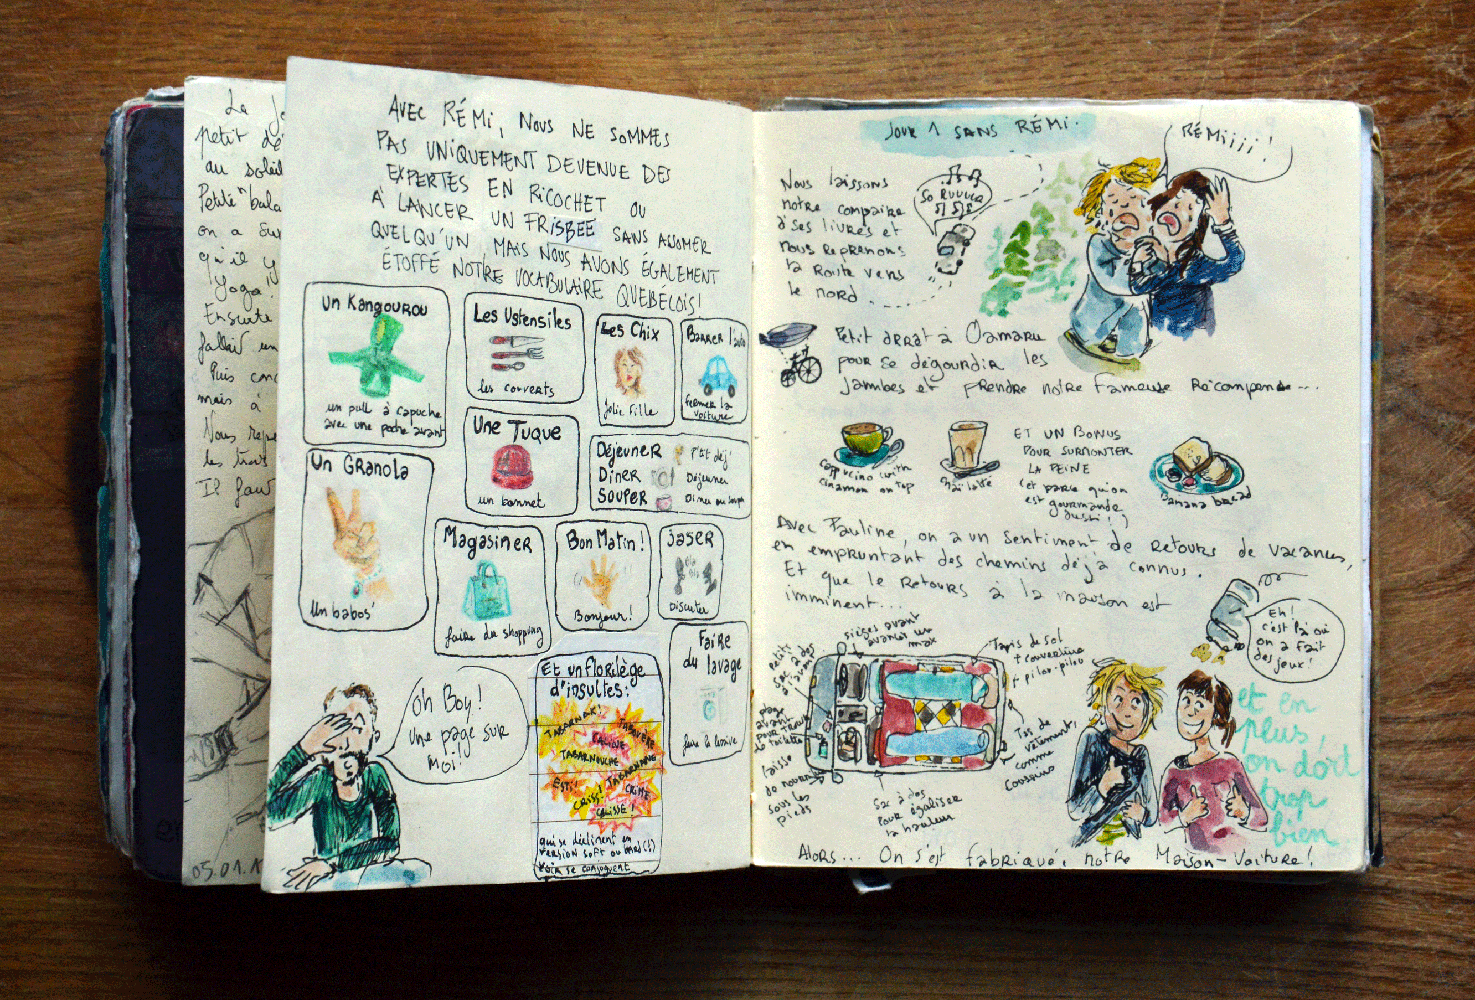 Le
petit dé
au soleil
Petite "bala
on a
qu'il y
Yoga!
Ensuite
fallait un
Puis
mais à
Nous
les
Il faut
05.01.1
AVEC RÉMI, NOUS NE SOMMES
PAS UNIQUEMENT DEVENUE DES
EXPERTES EN RICOCHET OU
À LANCER UN FRISBEE SANS ASSOMER
QUELQU'UN MAIS NOUS AVONS ÉGALEMENT
ÉTOFFÉ NOTRE VOCABULAIRE QUEBÉCOIS!
Un Kangourou
un pull à capuche
avec une poche avant
Les Ustensiles
les couverts
Les Chix
jolie fille
Barrer l'auto
fermer la
voiture
Un Granola
Un babos'
Une Tuque
un bonnet
Déjeuner P'tit déj'
Dîner Déjeuner
Souper Dîner ou Souper
Magasiner
faire du shopping
Bon Matin!
Bonjour!
Jaser
Discuter
Faire
du lavage
faire la lessive
Oh Boy!
Une page sur
Moi!
Et un florilège
d'insultes:
TABARNAK!
CALIQUE
TABARNOUCHE
ESTI!
CRISS!
CALISSE!
qui se déclinent en
version soft ou hard(s)
voir se conjuguent
JOUR 1 SANS RÉMI.
RÉMiiii!
Nous laissons
notre compaire
à ses livres et
nous reprenons
la route vers
le nord.
SO RUUUCA
Petit arrat à Oamaru
pour se dégourdir les
jambes et prendre notre fameuse récompense...
cappucino with
cinnamon on top
Chaï latté
ET UN BONUS
POUR SURMONTER
LA PEINE
(et parce qu'on
est gourmande
aussi!)
Banana bread
Avec Pauline, on a un sentiment de retours de vacances,
en empruntant des chemins déjà connus.
Et que le retours à la maison est
imminent...
Eh!
c'est là où
on a fait
des jeux!
sièges avant
avancés un
max
Tapis de sol
+ couverture
+ pilou-pilou
petits
sacs à dos
Tas de
vêtements
comme
coussins
Sac à dos
pour égaliser
la hauteur
caisse
de nourriture
sous les
pieds
et en
plus,
on dort
trop
bien
Alors... On s'est fabriqué, notre Maison-Voiture!